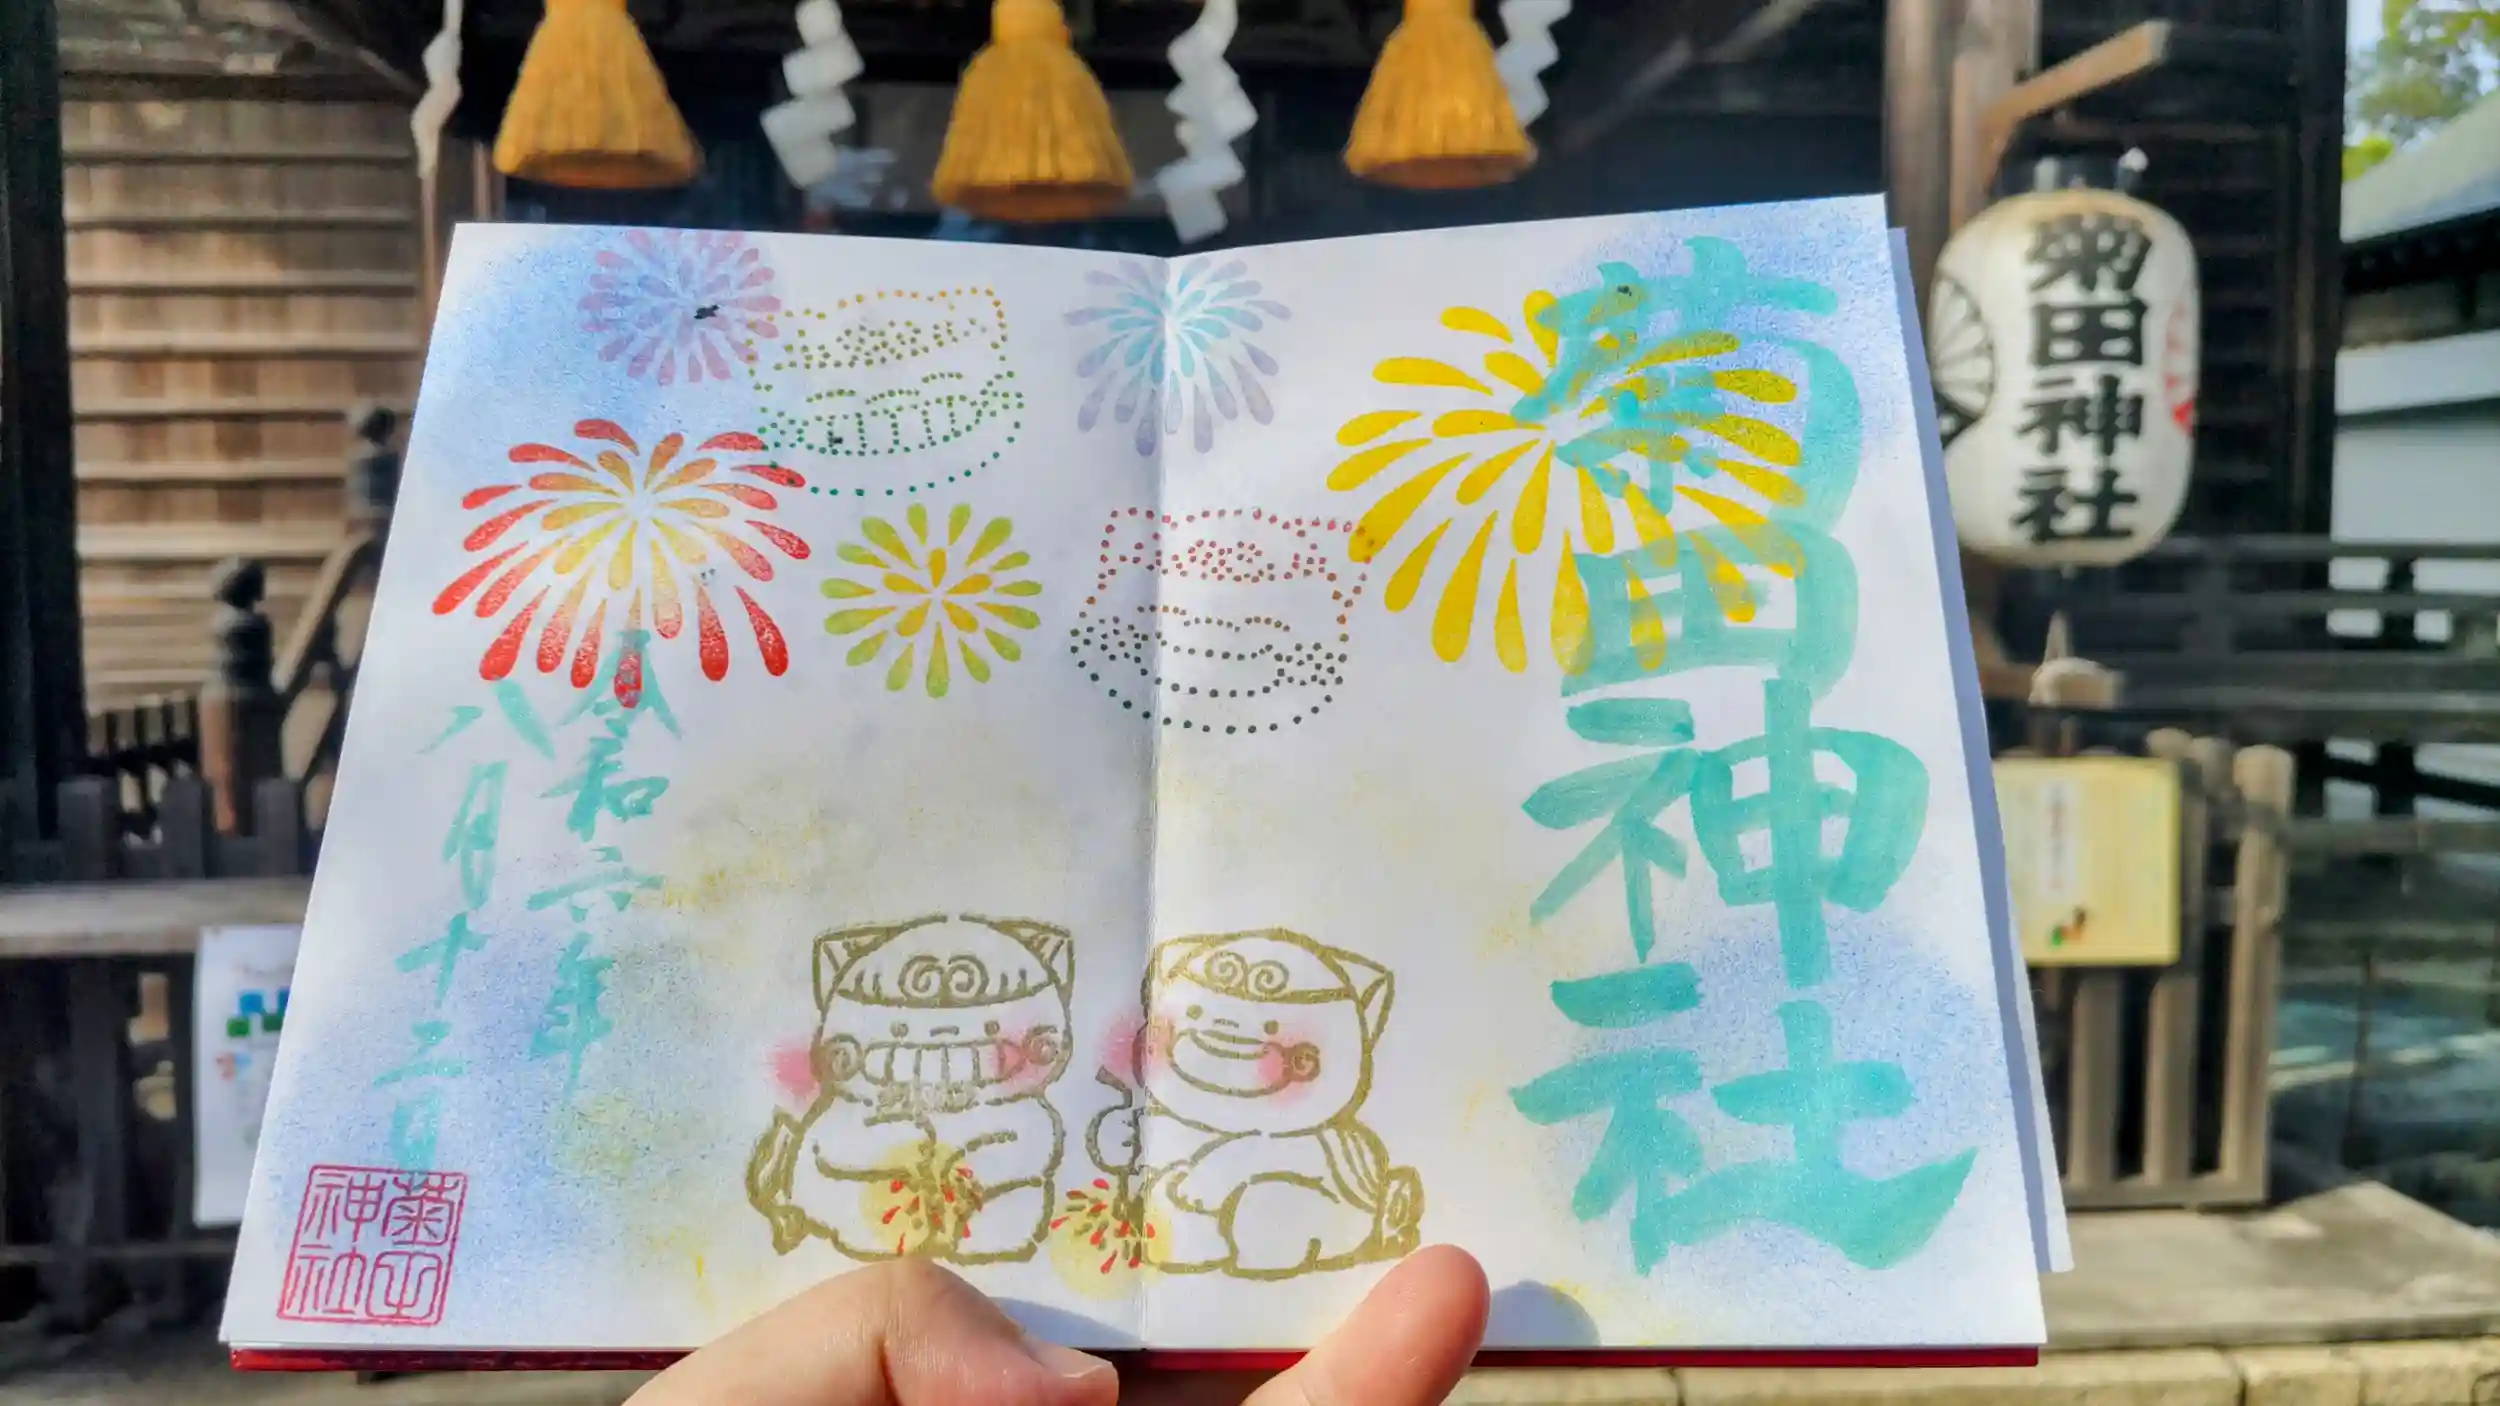 菊田神社
令和六年
八月十二日
菊田
神社
菊田神社